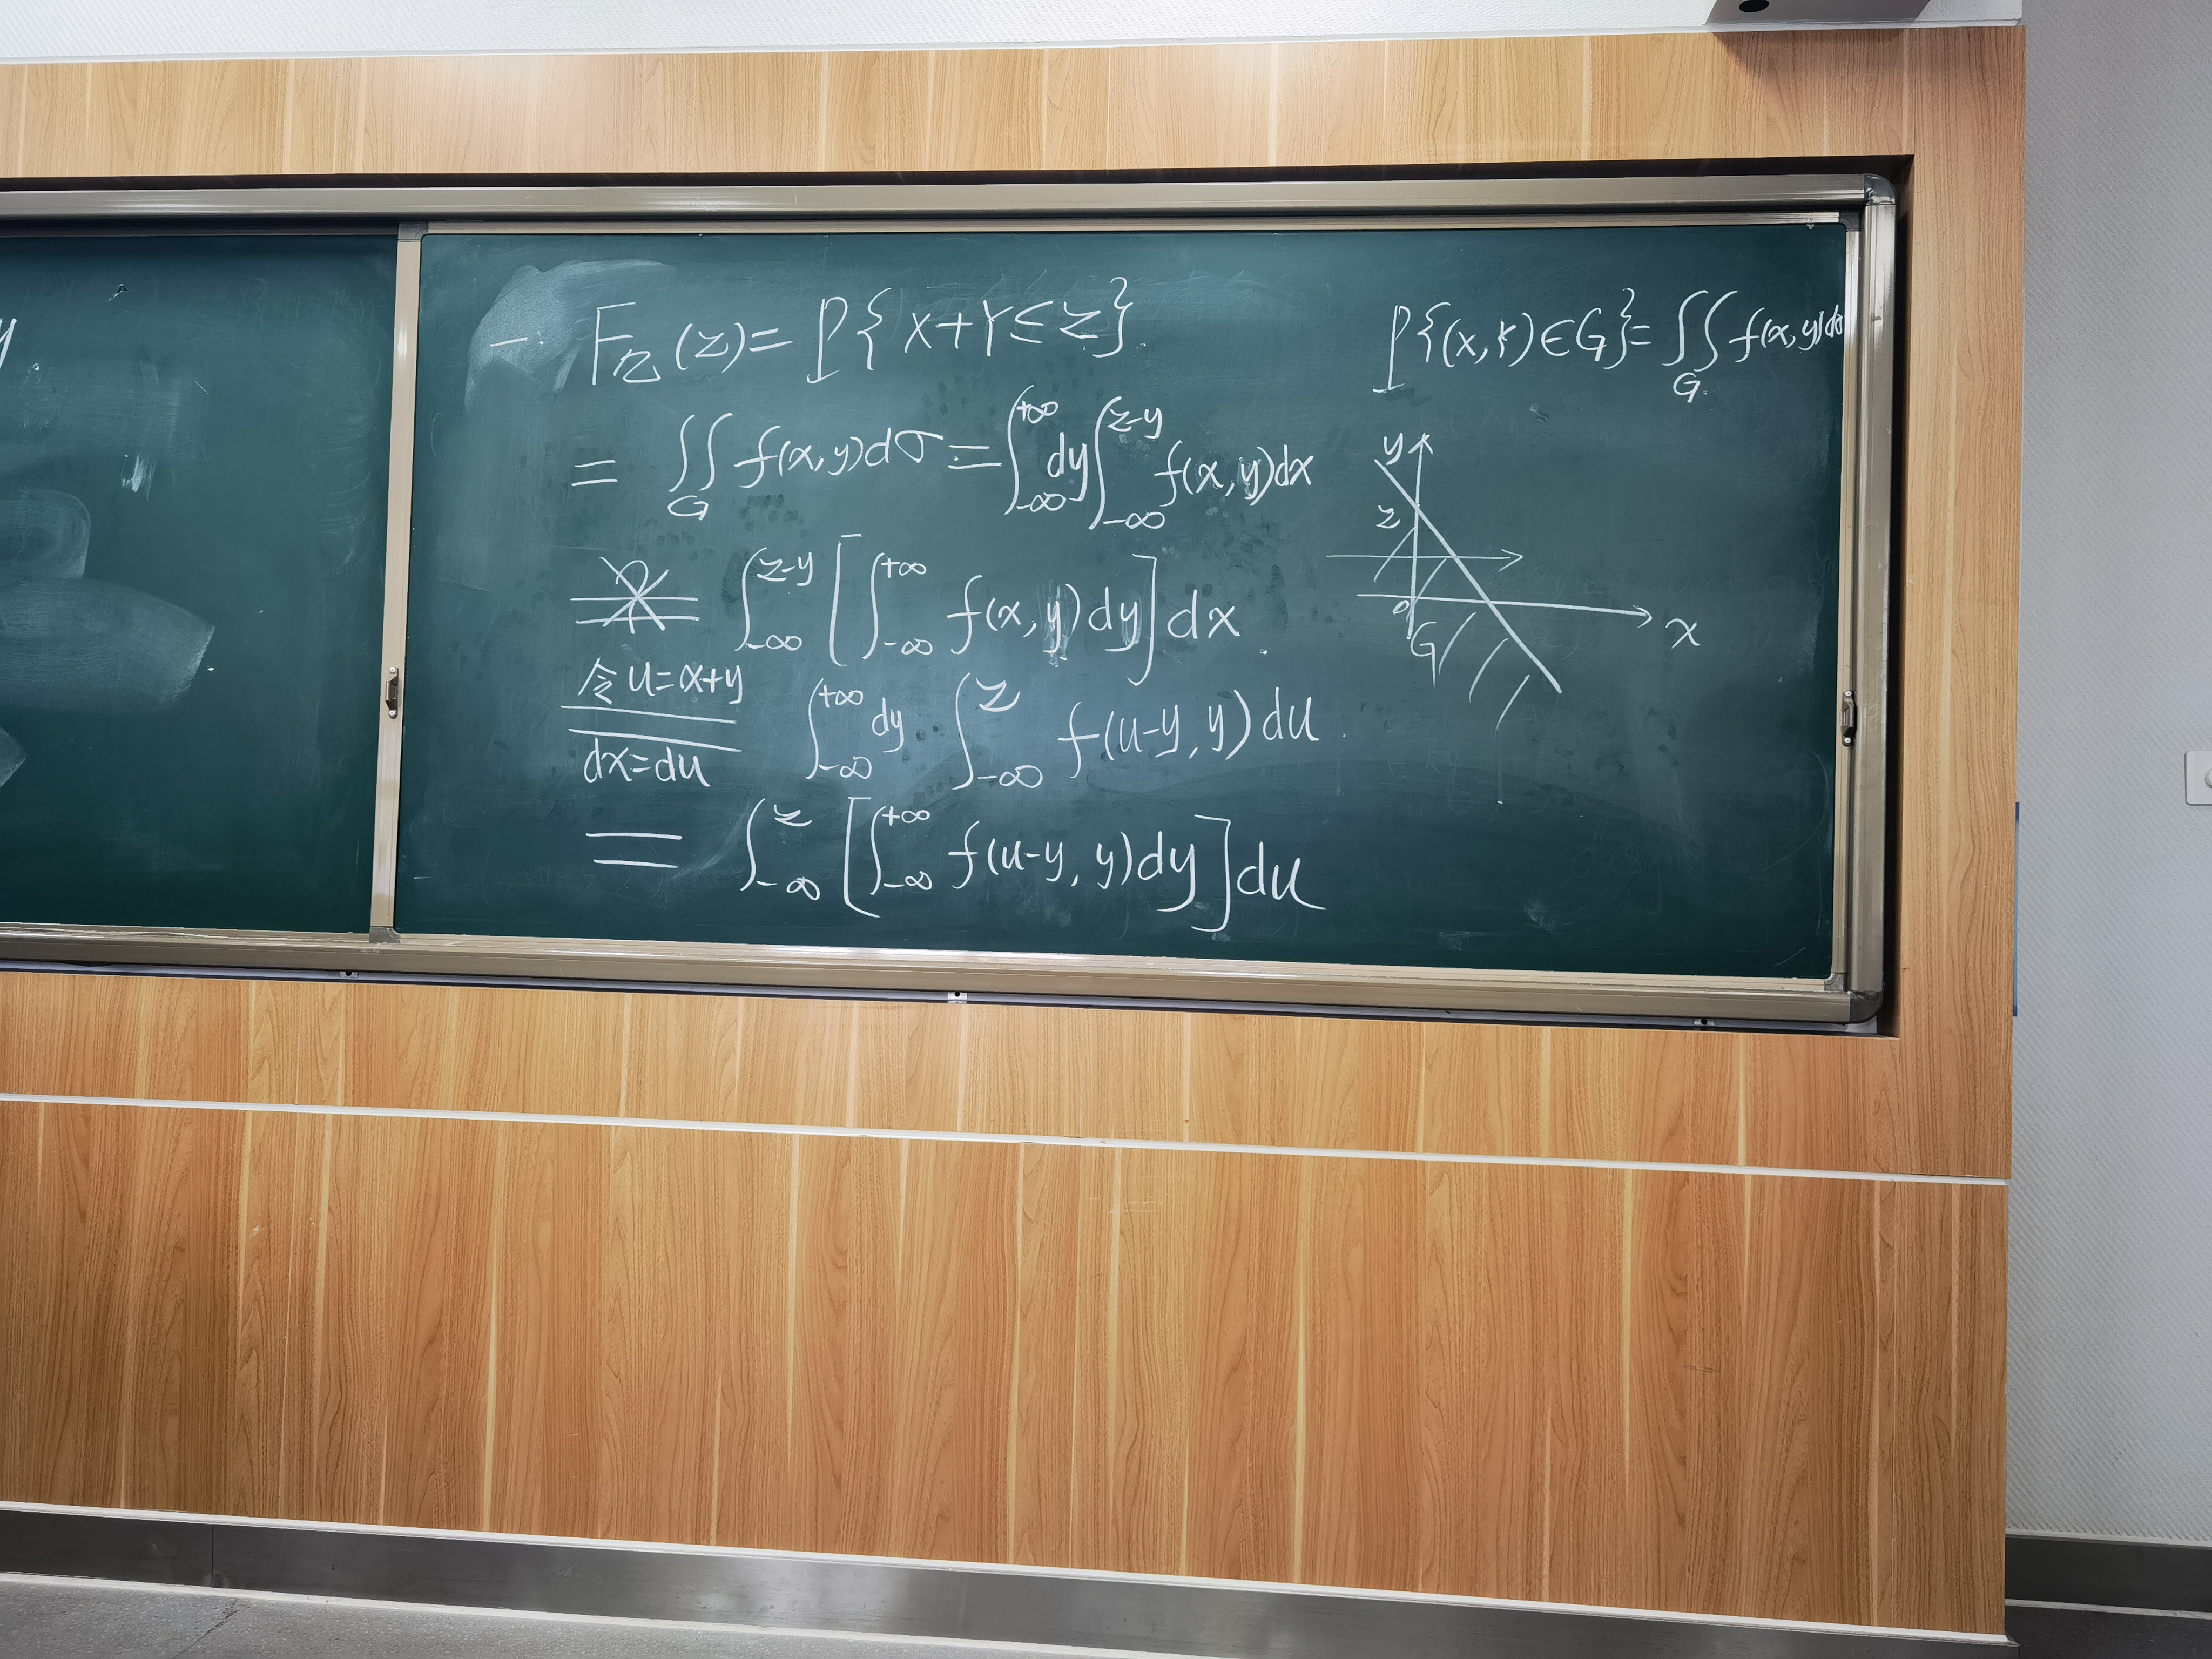 y
一. F_Z(z) = P{X+Y≤z}.
= ∬_G f(x,y)dσ = ∫_{-∞}^{+∞} dy ∫_{-∞}^{z-y} f(x,y)dx
= ∫_{-∞}^{z-y} [∫_{-∞}^{+∞} f(x,y)dy] dx.
令u=x+y
dx=du
∫_{-∞}^{+∞} dy ∫_{-∞}^{z} f(u-y,y)du.
= ∫_{-∞}^{z} [∫_{-∞}^{+∞} f(u-y,y)dy] du
P{(X,Y)∈G} = ∬_G f(x,y)dσ
y
z
o
x
G